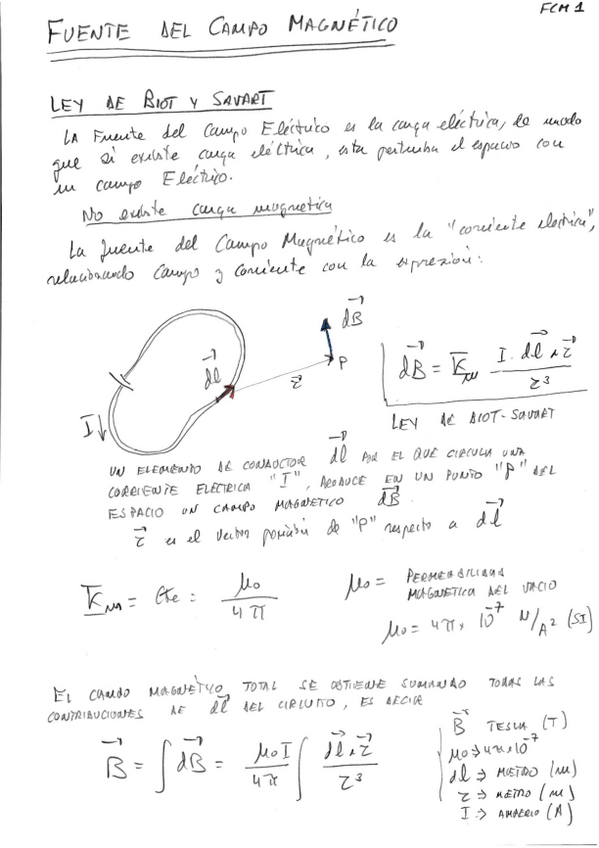 FCM 1
FUENTE DEL CAMPO MAGNÉTICO
LEY DE BIOT Y SAVART
LA Fuente del Campo Eléctrico es la carga eléctrica, de modo
que si existe carga eléctrica, esta perturba el espacio con
un campo Eléctrico.
No existe carga magnetica
La fuente del Campo Magnético es la "corriente electrica",
relacionando Campo y corriente con la expresión:
dB
dl
P
r
I
dB = Km I. dl ∧ r / r³
LEY DE BIOT-SAVART
UN ELEMENTO DE CONDUCTOR dl POR EL QUE CIRCULA UNA
CORRIENTE ELECTRICA "I", PRODUCE EN UN PUNTO "P" DEL
ESPACIO UN CAMPO MAGNETICO dB.
r es el vector posición de "P" respecto a dl
Km = Cte = μ₀ / 4π
μ₀ = PERMEABILIDAD
MAGNETICA DEL VACIO
μ₀ = 4π × 10⁻⁷ N/A² (SI)
EL CAMPO MAGNÉTICO TOTAL SE OBTIENE SUMANDO TODAS LAS
CONTRIBUCIONES DE dl DEL CIRCUITO, ES DECIR
B = ∫ dB = μ₀ I / 4π ∫ dl ∧ r / r³
B TESLA (T)
μ₀ → 4π×10⁻⁷
dl ⇒ METRO (m)
r ⇒ METRO (m)
I ⇒ AMPERIO (A)